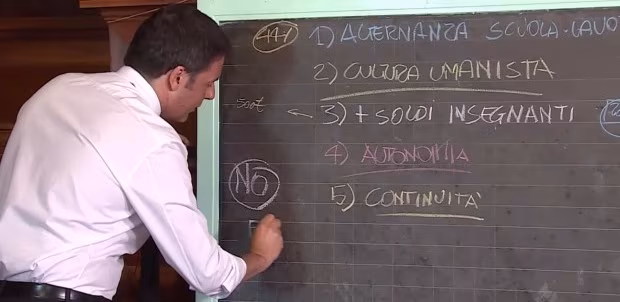 1) ALTERNANZA SCUOLA-LAVO
2) CULTURA UMANISTA
3) + SOLDI INSEGNANTI
4) AUTONOMIA
NO
5) CONTINUITA'